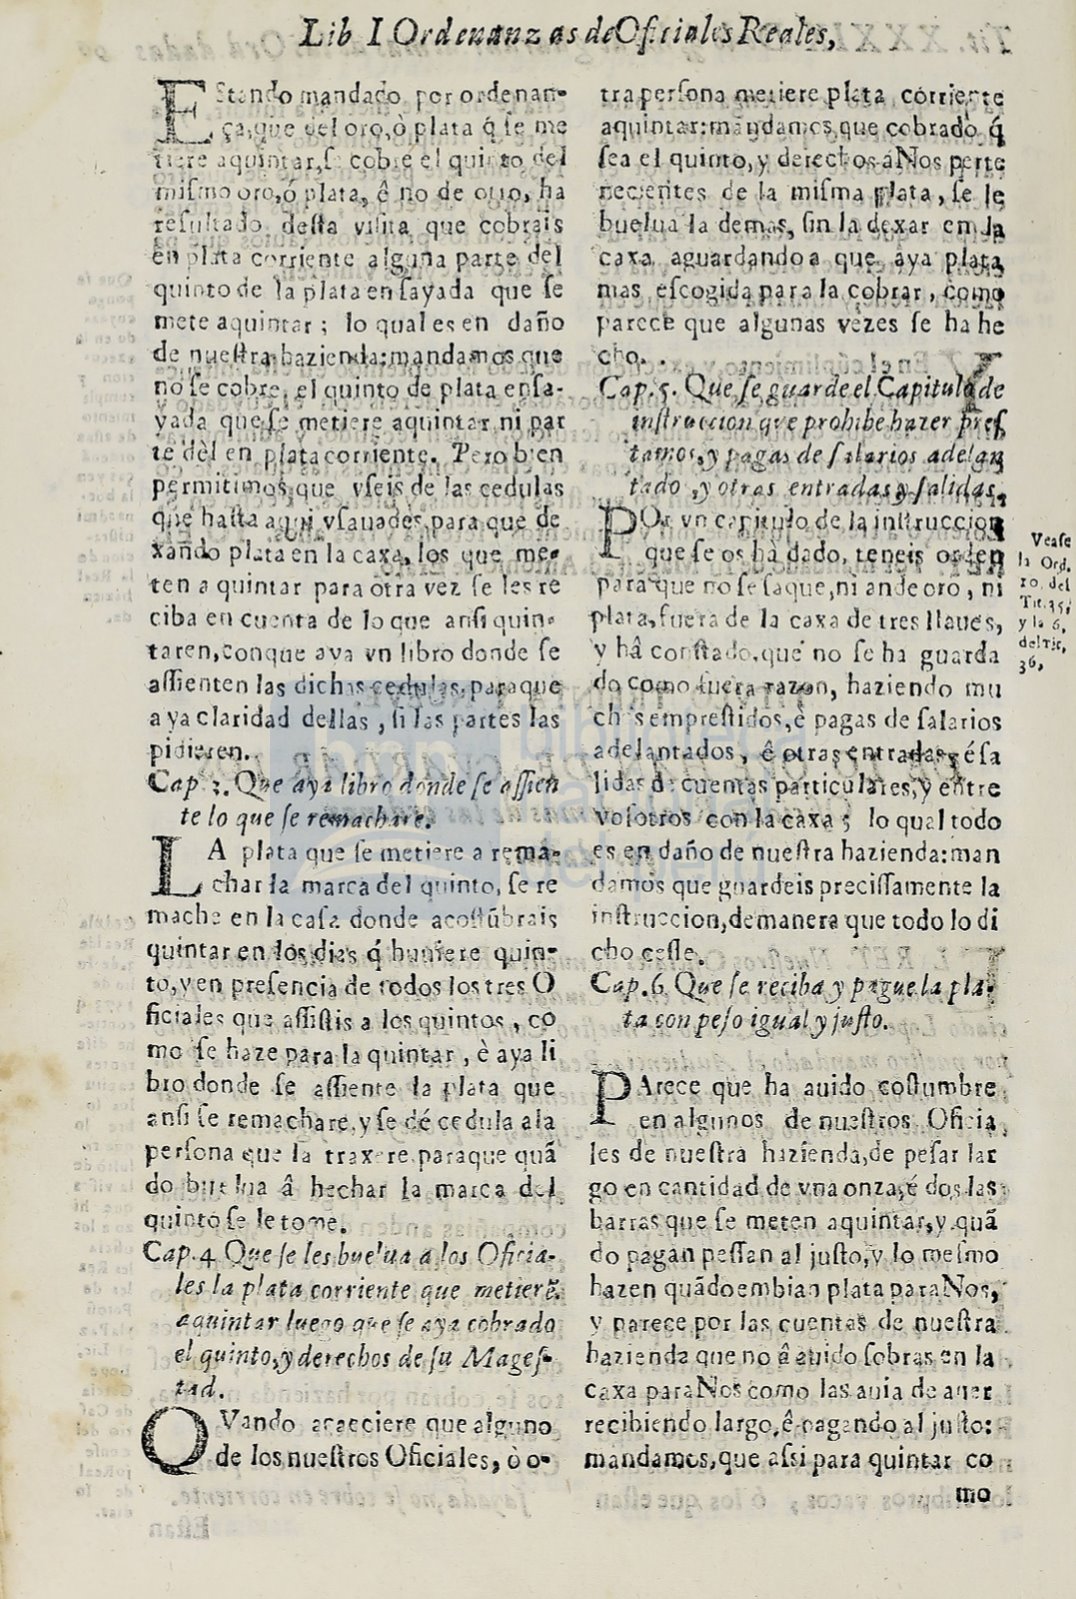 Lib I Ordenanzas de Oficiales Reales,
EStando mandado por ordenan-
ça, que del oro, ò plata q̃ se me
tiere aquintar, se cobre el quinto del
mismo oro, ó plata, ê no de otro, ha
resultado desta visita que cobrais
en plata corriente alguna parte del
quinto de la plata ensayada que se
mete aquintar; lo qual es en daño
de nuestra hazienda: mandamos que
no se cobre el quinto de plata ensa-
yada que se metiere aquintar ni par
te dèl en plata corriente. Pero bien
permitimos, que vseis de las cedulas
que hasta aqui vsauades, para que de
xando plata en la caxa, los que me-
ten a quintar para otra vez se les re
ciba en cuenta de lo que ansi quin-
taren, conque aya vn libro donde se
assienten las dichas cedulas, paraque
aya claridad dellas, si las partes las
pidieren.
Cap 3. Que aya libro donde se assien
te lo que se remachare.
LA plata que se metiere a rema-
char la marca del quinto, se re
mache en la casa donde acostũbrais
quintar en los dias q̃ huuiere quin-
to, y en presencia de todos los tres O
ficiales que assistis a los quintos, co
mo se haze para la quintar, è aya li
bro donde se assiente la plata que
ansi se remachare, y se dé cedula ala
persona que la traxere, paraque quã
do buelua â hechar la marca del
quinto se le tome.
Cap. 4 Que se les buelua a los Oficia-
les la plata corriente que metierẽ
aquintar luego que se aya cobrado
el quinto, y derechos de su Mages-
tad.
QVando acaeciere que alguno
de los nuestros Oficiales, ò o-
tra persona metiere plata corriente
aquintar: mandamos, que cobrado q̃
sea el quinto, y derechos á Nos perte
necientes de la misma plata, se le
buelua la demas, sin la dexar en la
caxa aguardando a que aya plata
mas escogida para la cobrar, como
parece que algunas vezes se ha he
cho.
Cap. 5. Que se guarde el Capitulo de
instruccion que prohibe hazer pres
tamos, y pagas de salarios adelan
tado, y otras entradas y salidas.
POr vn capitulo de la instruccion
que se os ha dado, teneis orden
para que no se saque, ni ande oro, ni
plata, fuera de la caxa de tres llaues,
y hâ constado, que no se ha guarda
do como fuera razon, haziendo mu
chos emprestidos, è pagas de salarios
adelantados, ê otras entradas, é sa
lidas de cuentas particulares, y entre
vosotros con la caxa; lo qual todo
es en daño de nuestra hazienda: man
damos que guardeis precissamente la
instruccion, demanera que todo lo di
cho cesse.
Cap. 6. Que se reciba y pague la pla-
ta con peso igual y justo.
PArece que ha auido costumbre
en algunos de nuestros Oficia
les de nuestra hazienda, de pesar lar
go en cantidad de vna onza, é dos las
barras que se meten aquintar, y quã
do pagan pessan al justo, y lo mesmo
hazen quãdo embian plata para Nos,
y parece por las cuentas de nuestra
hazienda que no â auido sobras en la
caxa para Nos como las auia de auer
recibiendo largo, ê pagando al justo:
mandamos, que assi para quintar co
mo
Vease
la Ord.
10. del
Tit. 35,
y la 6,
del Tit,
36,